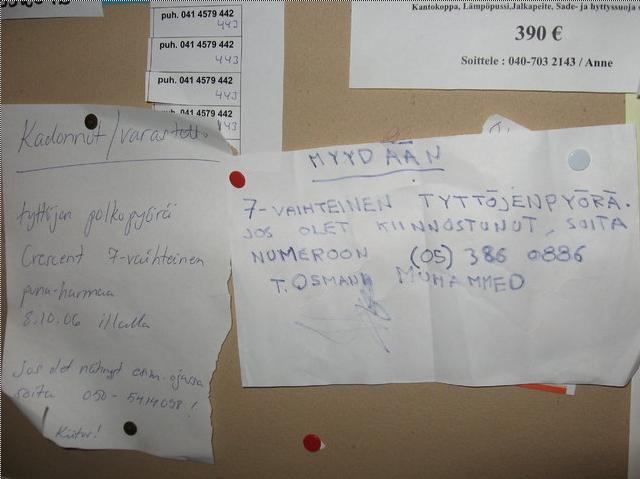 puh. 041 4579 442
443
puh. 041 4579 442
443
puh. 041 4579 442
443
puh. 041 4579 442
443
Kantokoppa, Lämpöpussi,Jalkapeite, Sade- ja hyttyssuoja
390 €
Soittele : 040-703 2143 / Anne
Kadonnut/varastettu
tyttöjan polkupyörä
Crescent 7-vaihteinen
puna-harmaa
8.10.06 illalla
Jos olet nähnyt
soita 050-5414098!
Kiitos!
MYYDÄÄN
7-VAIHTEINEN TYTTÖJENPYÖRÄ.
JOS OLET KIINNOSTUNUT, SOITA
NUMEROON (05) 386 0886
T. OSMAN MUHAMMED